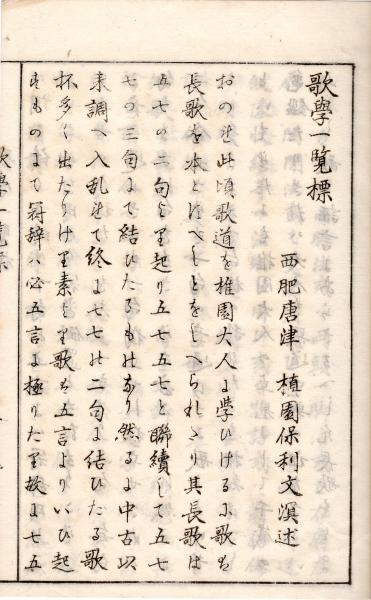 歌學一覧標
西肥唐津 植園保利文溟述
おのれ此頃歌道を椎園大人に學ひけるに歌は
長歌を本とすへしとをしへられたり其長歌は
五七の二句より起り五七五七と聯續して五七
七の三句にて結ひたるものなり然るに中古以
来調へ入乱れて終に七七の二句に結ひたる歌
杯多く出たりけり素より歌は五言よりいひ起
すものにて冠辞は必五言に極りたり故に七五
歌學一覧標